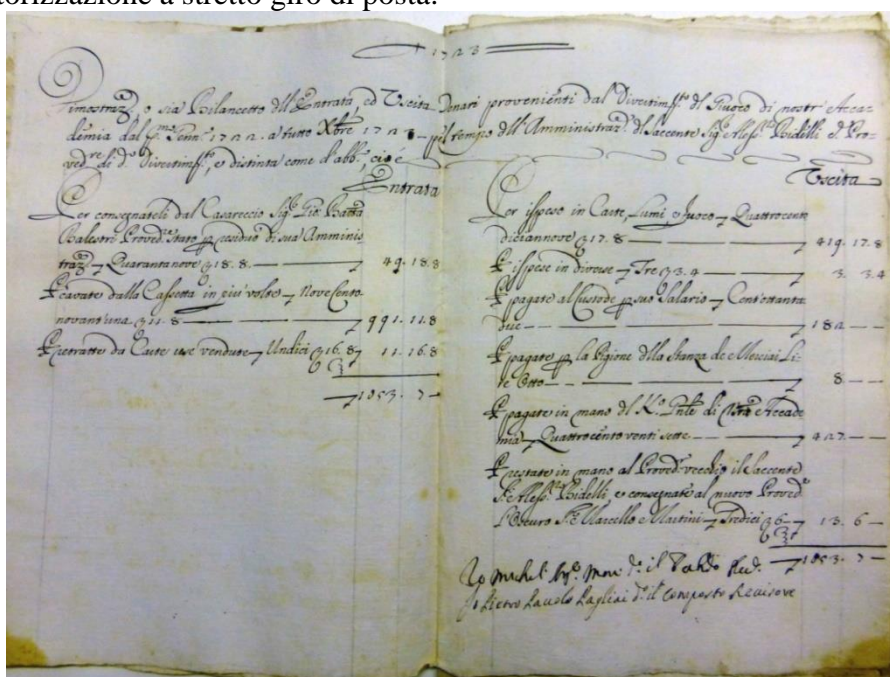 torizzazione a stretto giro di posta.
1723
Dimostraz. o sia Bilancetto dll Entrata, ed Uscita Denari provenienti dal Divertim.to dl Giuoco di nostr' Acca-
demia dal p.mo Genn. 1722. a tutto Xbre 1723 pl tempo dll' Amministraz. dl Saccente Sig. Aless. Bidelli P. Pro-
ved.re di d.o Divertim.to, e distinta come d'abb., cioè
Entrata
Per consegnateli dal Casareccio Sig. Gio: Batta
Balestri Proved.re Stato p residuo di sua Amminis
traz. Quarantanove 18. 8. 49. 18. 8
P cavate dalla Cassetta in piu' volte Nove Cento
novant'una 11. 8 991. 11. 8
P ritratte da Carte use vendute Undici 16. 8 11. 16. 8
1053. 7 -
Uscita
Per ispeso in Carte, Lumi, e fuoco Quattrocento
diciannove 17. 8 419. 17. 8
P ispese in diverse Tre 3. 4 3. 3. 4
P pagate al Custode p suo Salario Cent'ottanta
due 182 - -
P pagate p la Pigione dlla Stanza de Merciai Li-
re Otto 8 - -
P pagate in mano dl di Acade
mia Quattrocento venti sette 427 - -
P restate in mano al Proved. vecchio il Saccente
S. Aless. Bidelli, e consegnate al nuovo Proved.
l'Oscuro S. Marcello Martini Tredici 6 13. 6 -
1053. 7 -
Io Michel d. il Tardo Rev.
Io Pietro Pavolo Pagliai d. il Composto Revisore